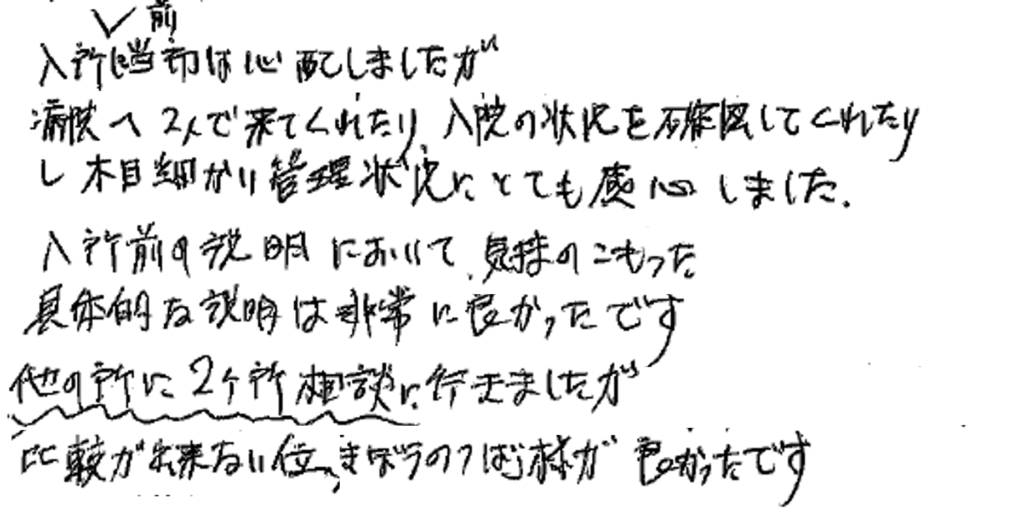 前
入所当初は心配しましたが
病院へ2人で来てくれたり、入院の状況を確認してくれたり
し 木目細かい管理状況にとても感心しました.
入所前の説明において、気持のこもった
具体的な説明は非常に良かったです
他の所に2ケ所相談に行きましたが
比較が出来ない位、まほろのつばさ様が良かったです